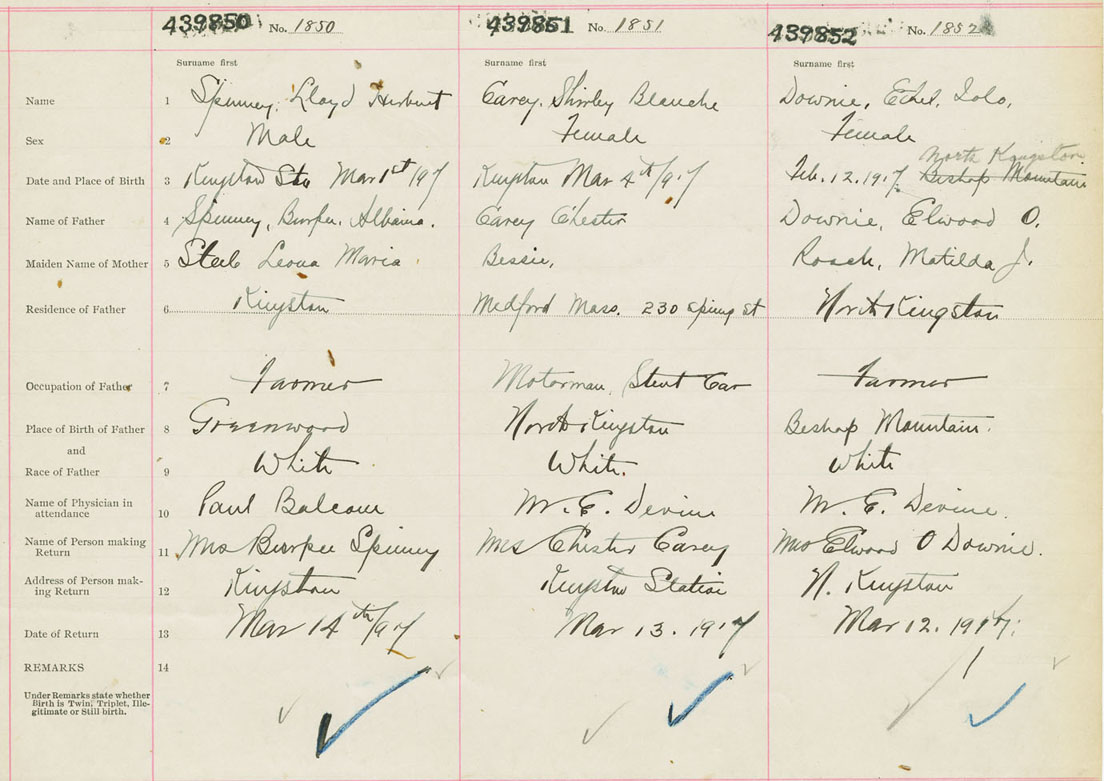 439850 No. 1850 439851 No. 1851 439852 No. 1852
Surname first Surname first Surname first
Name 1 Spinney, Lloyd Herbert Carey, Shirley Blanche Downie, Ethel, Iolo,
Sex 2 Male Female Female
North Kingston
Date and Place of Birth 3 Kingston Sta Mar 1st/917 Kingston Mar 4th/917 Feb. 12. 1917. Bishop Mountain
Name of Father 4 Spinney, Burpee, Albania. Carey Chester Downie, Elwood O.
Maiden Name of Mother 5 Leona Maria Bessie, Roach, Matilda J.
Residence of Father 6 Kingston Medford Mass. 230 Spring St North Kingston
Occupation of Father 7 Farmer Motorman, Street Car Farmer
Place of Birth of Father 8 Greenwood North Kingston Beshop Mountain.
and
Race of Father 9 White White. White
Name of Physician in
attendance 10 Paul Balcom M. E. Devine M. E. Devine.
Name of Person making
Return 11 Mrs Burpee Spinney Mrs Chester Carey Mrs Elwood O Downie.
Address of Person mak-
ing Return 12 Kingston Kingston Station N. Kingston
Date of Return 13 Mar 14th/917 Mar 13. 1917 Mar 12. 1917.
REMARKS 14
Under Remarks state whether
Birth is Twin, Triplet, Ille-
gitimate or Still birth.